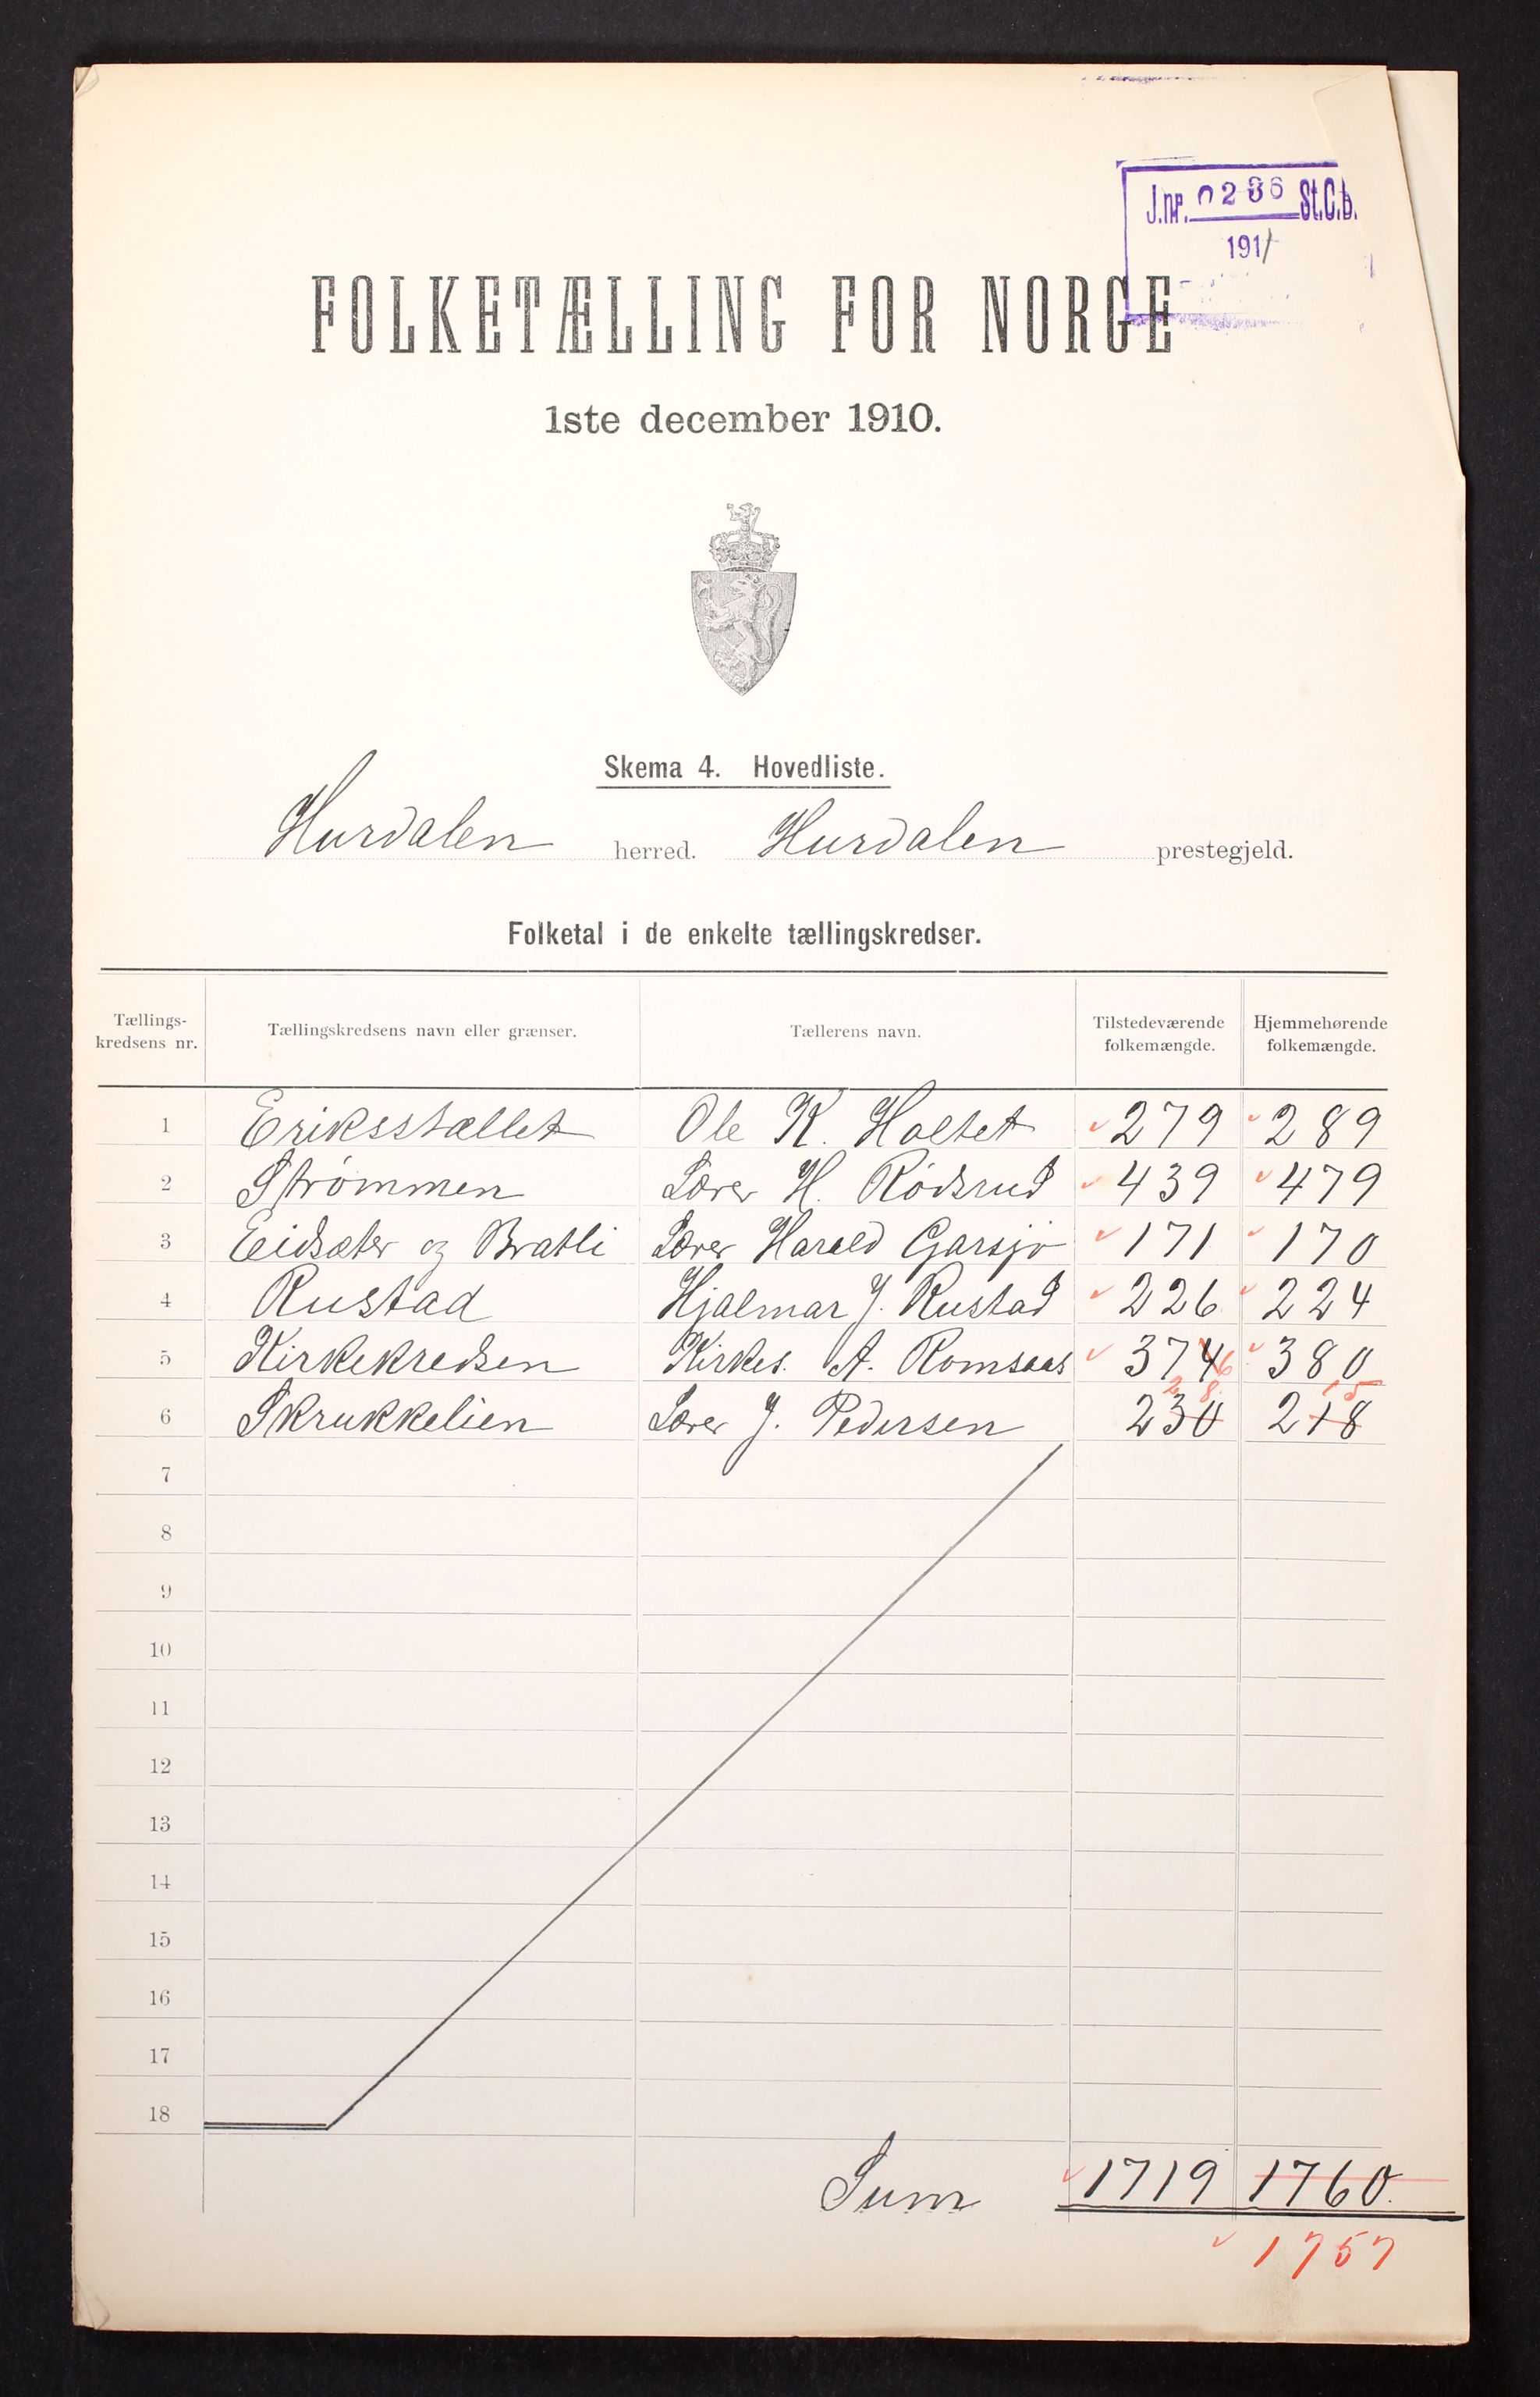 J.nr. 0286 St.C.b.
1911
FOLKETÆLLING FOR NORGE
1ste december 1910.
Skema 4. Hovedliste.
Hurdalen herred. Hurdalen prestegjeld.
Folketal i de enkelte tællingskredser.
Tællings-kredsens nr. Tællingskredsens navn eller grænser. Tællerens navn. Tilstedeværende folkemængde. Hjemmehørende folkemængde.
1 Eriksstallet Ole K. Holtet 279 289
2 Strømmen Lærer H. Rödsrud 439 479
3 Eidsæter og Bratli Lærer Harald Garsjö 171 170
4 Rustad Hjalmar J. Rustad 226 224
5 Kirkekredsen Kirkes. A. Romsaas 374 6 380
2 8 15
6 Skrukkelien Lærer J. Pedersen 230 218
7
8
9
10
11
12
13
14
15
16
17
18
Sum 1719 1760
1757